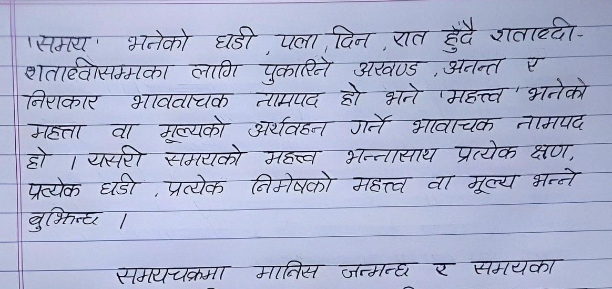 'समय' भनेको घडी, पला, दिन, रात हुँदै शताब्दी-
शताब्दीसम्मका लागि पुकारिने अखण्ड, अनन्त र
निराकार भाववाचक नामपद हो भने 'महत्त्व' भनेको
महत्ता वा मूल्यको अर्थवहन गर्ने भावाचक नामपद
हो । यसरी समयको महत्त्व भन्नासाथ प्रत्येक क्षण,
प्रत्येक घडी, प्रत्येक निमेषको महत्त्व वा मूल्य भन्ने
बुझिन्छ ।
समयचक्रमा मानिस जन्मन्छ र समयका